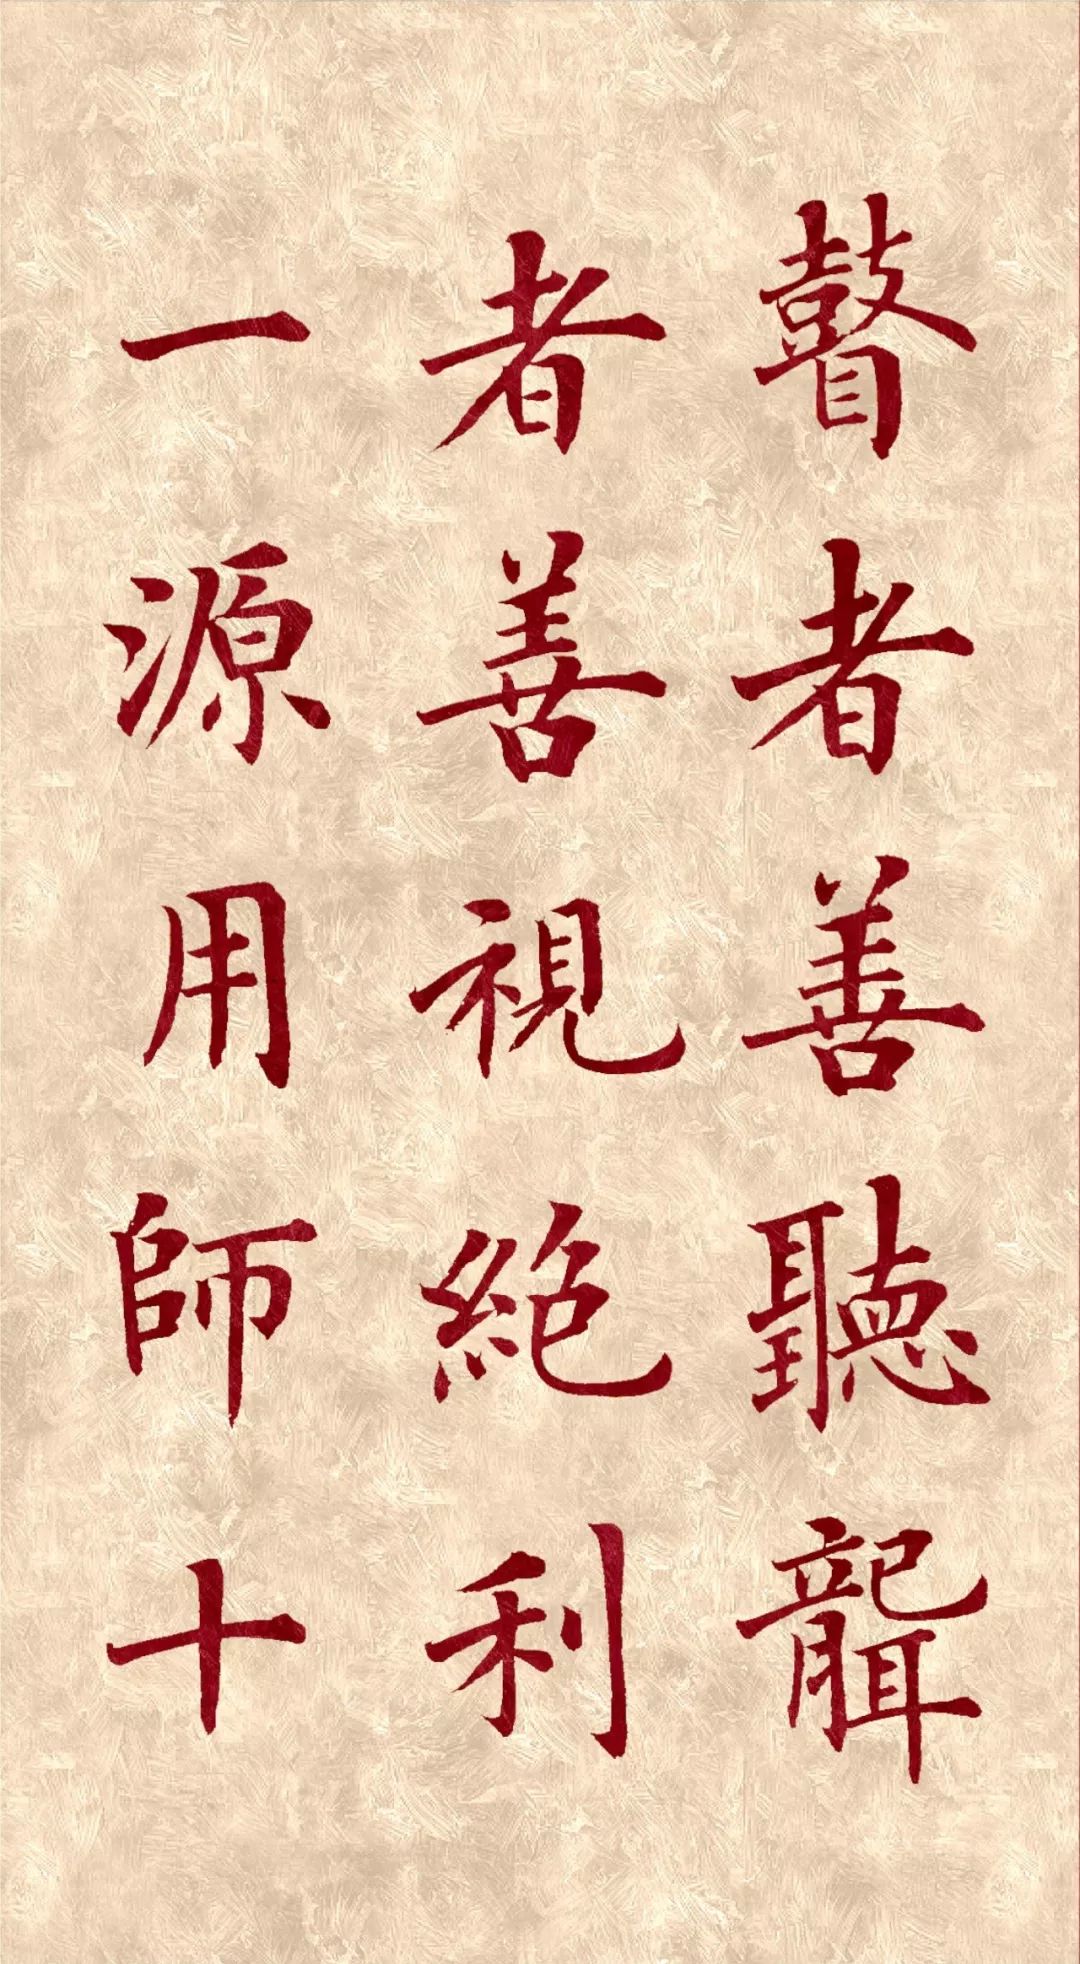 瞽者善聽聾
者善視絕利
一源用師十